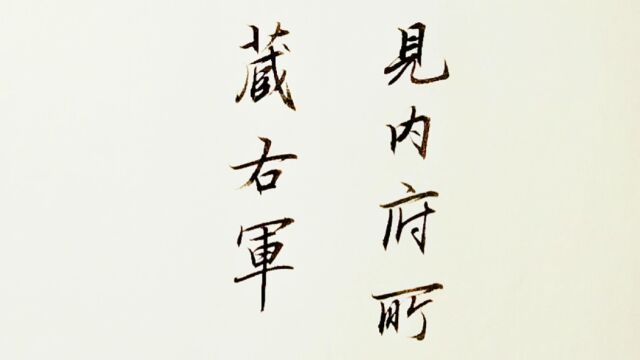 見内府所
蔵右軍